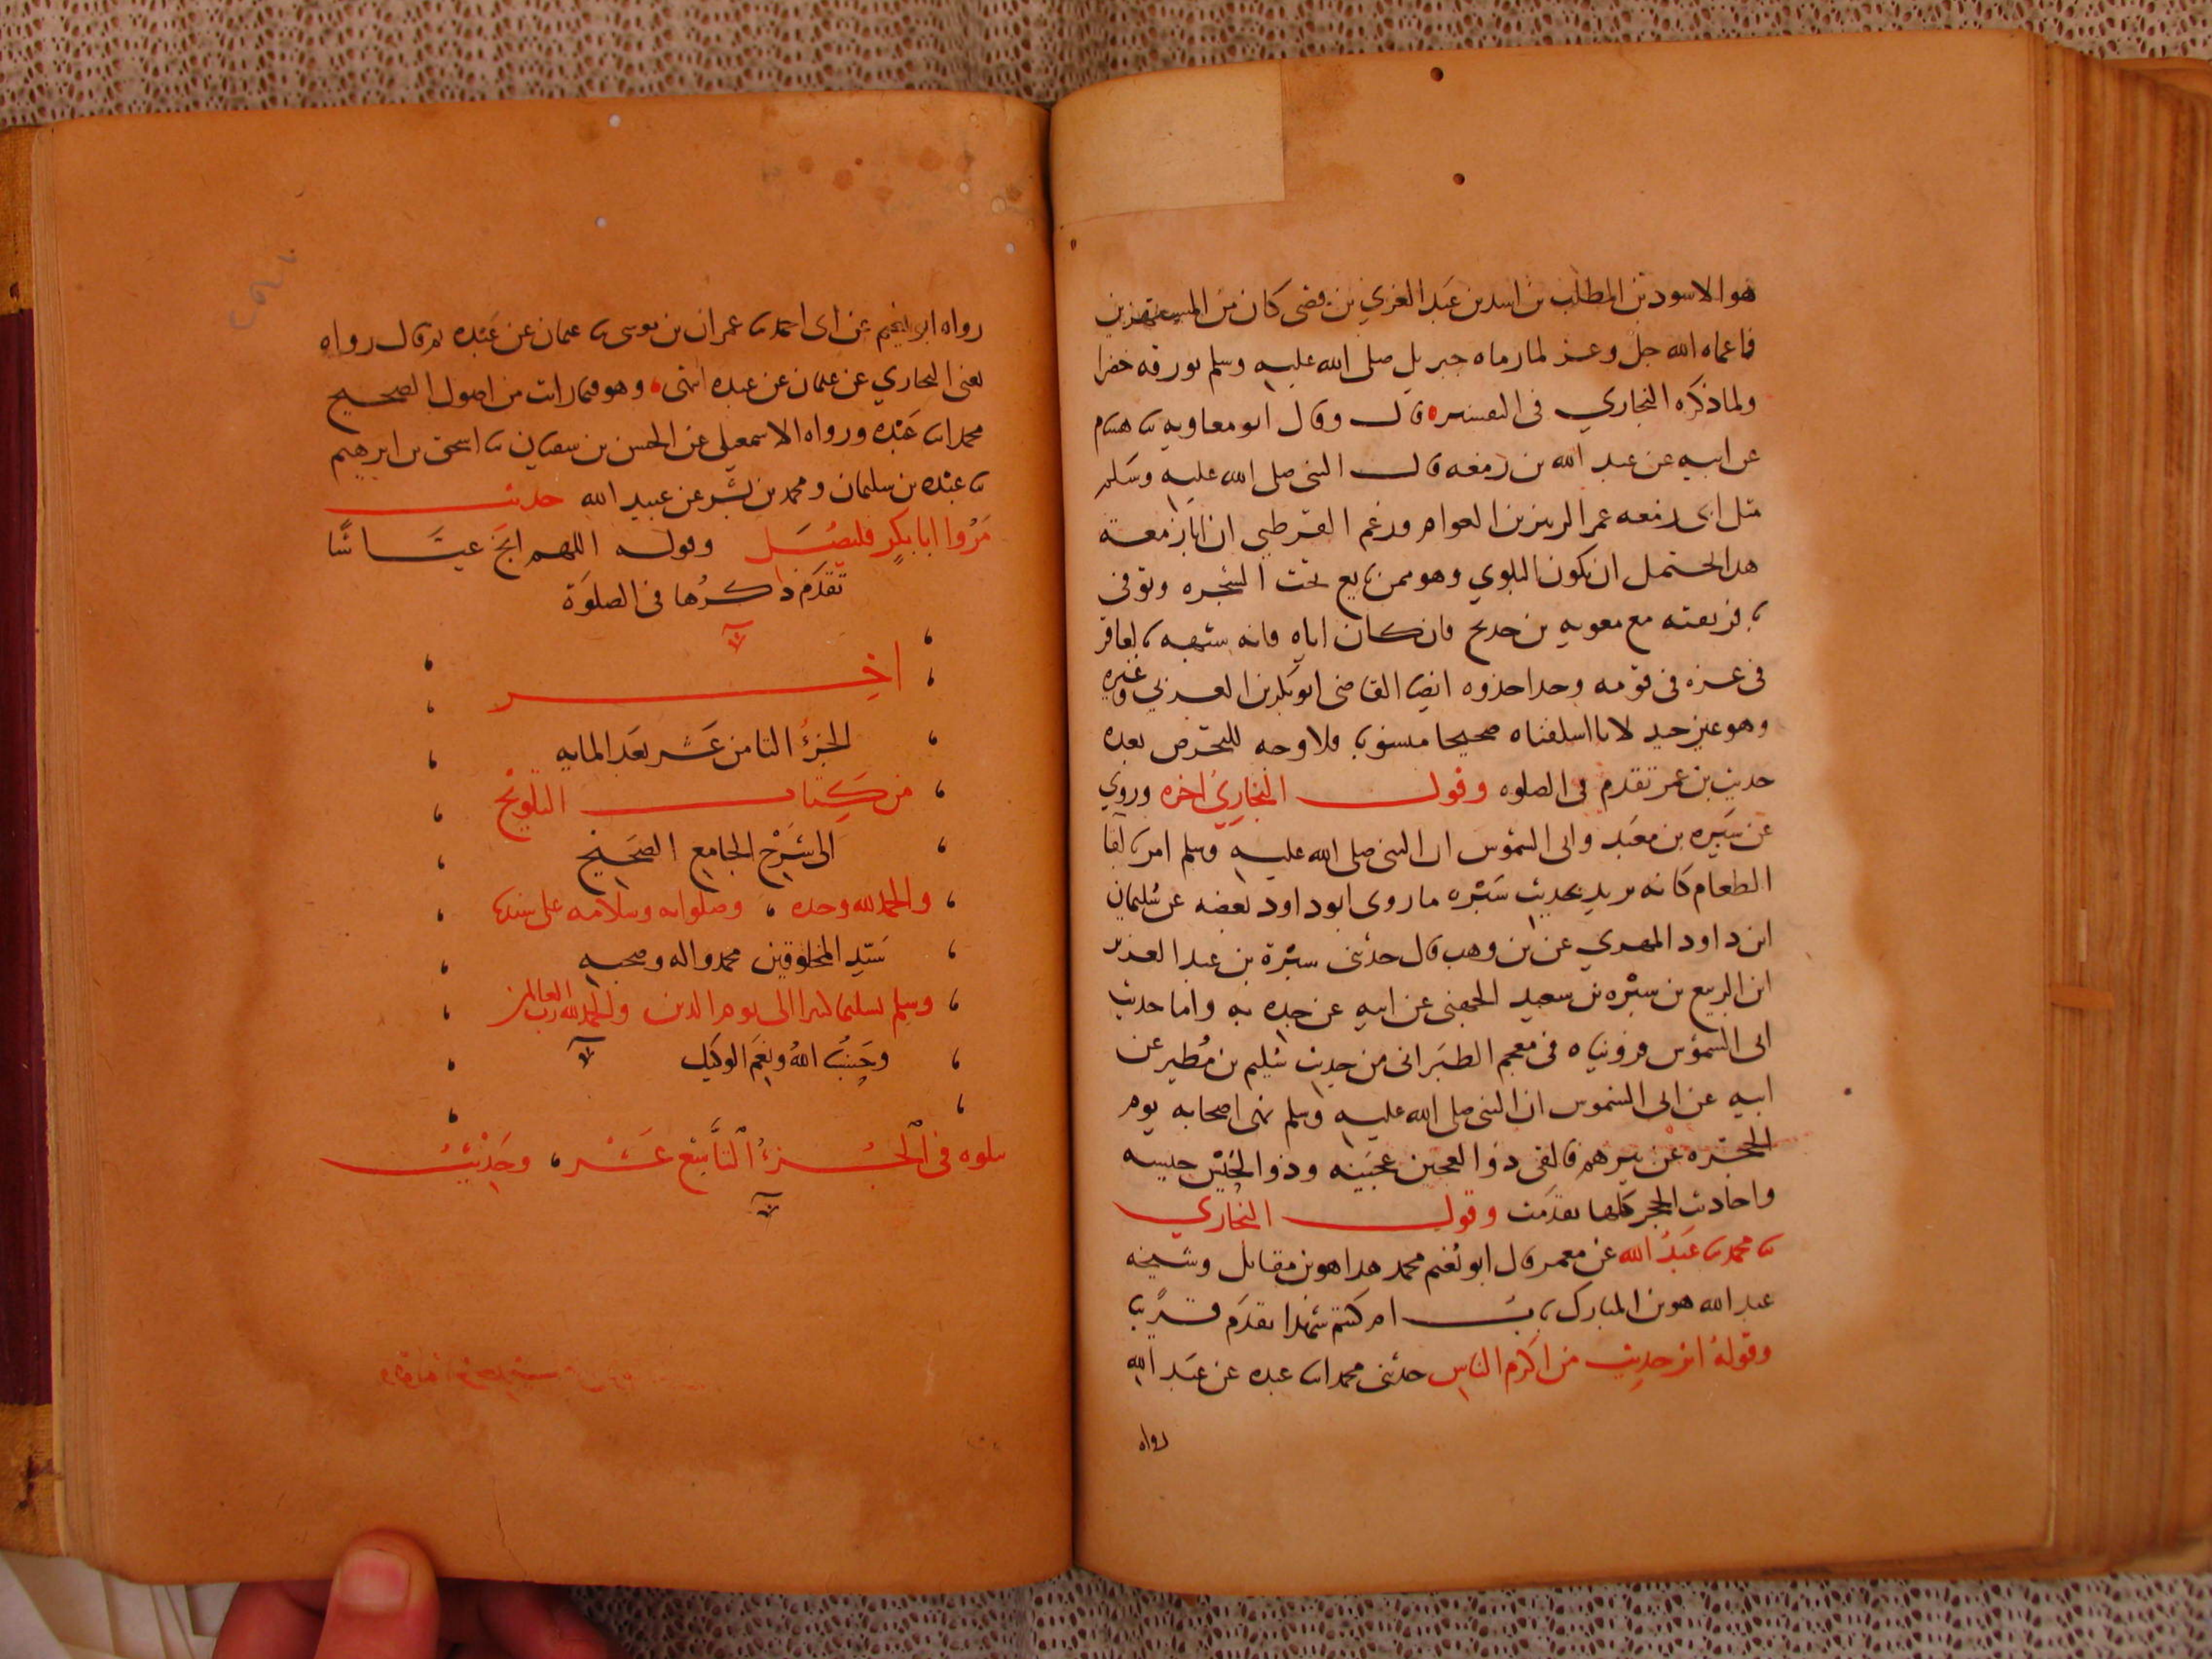 هو الاسود بن المطلب بن اسد بن عبد العزي بن قصي كان من المستهزين
فاعماه الله جل وعز لما رماه جبريل صلى الله عليه وسلم بورقه خضرا
ولما ذكره البخاري في التفسير قال وقال ابو معاويه ثنا هشام
عن ابيه عن عبد الله بن زمعه قال النبي صلى الله عليه وسلم
مثل ابي زمعه عم الزبير بن العوام وزعم القرطبي ان ابا زمعة
هذا يحتمل ان يكون البلوي وهو ممن بايع تحت الشجره وتوفي
بافريقيه مع معويه بن حديج فان كان اياه فانه شبهه بعاقر
في عزه في قومه وحذا حذوه ايضا القاضي ابو بكر بن العربي وغيره
وهو غير جيد لانا اسلفناه صحيحا منسوبا فلا وجه للتخرص بعده
حديث بن عمر تقدم في الصلوه وقول البخاري اخره وروي
عن سبره بن معبد وابي الشموس ان النبي صلى الله عليه وسلم امر بالقا
الطعام كانه يريد بحديث سبره ما روى ابو داود بعضه عن سليمان
ابن داود المهري عن بن وهب قال حدثني سبرة بن عبد العزيز
ابن الربيع بن سبره بن سعيد الجهني عن ابيه عن جده به واما حديث
ابي الشموس فرويناه في معجم الطبراني من حديث سليم بن مطير عن
ابيه عن ابي الشموس ان النبي صلى الله عليه وسلم نهى اصحابه يوم
الحجر عن بيرهم فالقى ذو العجين عجينه وذو الحيس حيسه
واحاديث الحجر كلها تقدمت وقول البخاري
ثنا محمد ثنا عبد الله عن معمر قال ابو نعيم محمد هذا هو بن مقاتل وشيخه
عبد الله هو بن المبارك باب ام كنتم شهدا تقدم قريبا
وقوله اثر حديث من اكرم الناس حدثني محمد انا عبده عن عبد الله
رواه
رواه ابو نعيم عن ابي احمد ثنا عمران بن موسى ثنا عثمان عن عبده ثم قال رواه
يعني البخاري عن عثمان عن عبده انتهى وهو فيما رايت من اصول الصحيح
محمد انا عبده ورواه الاسمعيلي عن الحسن بن سفيان ثنا اسحق بن ابرهيم
ثنا عبده بن سليمان ومحمد بن بشر عن عبيد الله حديث
مروا ابا بكر فليصل وقوله اللهم انج عياشا
تقدم ذكرها في الصلوة
اخر
الجزء الثامن عشر بعد المايه
من كتاب التلويح
الى شرح الجامع الصحيح
والحمد لله وحده وصلواته وسلامه على سيدنا
سيد المخلوقين محمد واله وصحبه
وسلم تسليما كثيرا الى يوم الدين والحمد لله رب العالمين
وحسبنا الله ونعم الوكيل
يتلوه في الجزء التاسع عشر وحديث